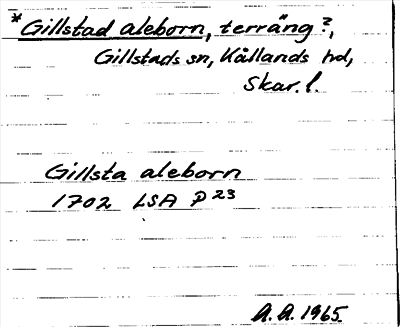 *Gillstad aleborn, terräng?,
Gillstads sn, Kållands hd,
Skar. l.
Gillsta aleborn
1702 LSA P 23
A. A. 1965.